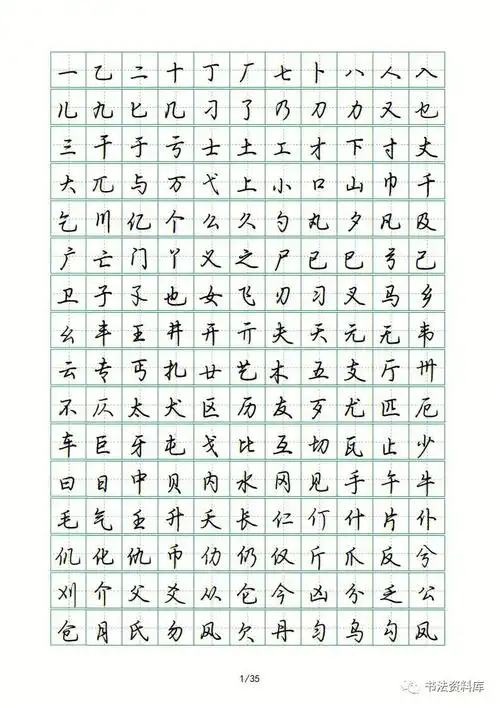 一乙二十丁厂七卜八人入
儿九匕几刁了乃刀力又乜
三干于亏士土工才下寸丈
大兀与万弋上小口山巾千
乞川亿个么久勺丸夕凡及
广亡门丫义之尸已巳弓己
卫子孓也女飞刃习叉马乡
幺丰王井开亓夫天元无韦
云专丐扎廿艺木五支厅卅
不仄太犬区历友歹尤匹厄
车巨牙屯戈比互切瓦止少
曰日中贝内水冈见手午牛
毛气壬升夭长仁仃什片仆
仉化仇币仂仍仅斤爪反兮
刈介父爻从仑今凶分乏公
仓月氏勿风欠丹匀乌勾凤
1/35
书法资料库